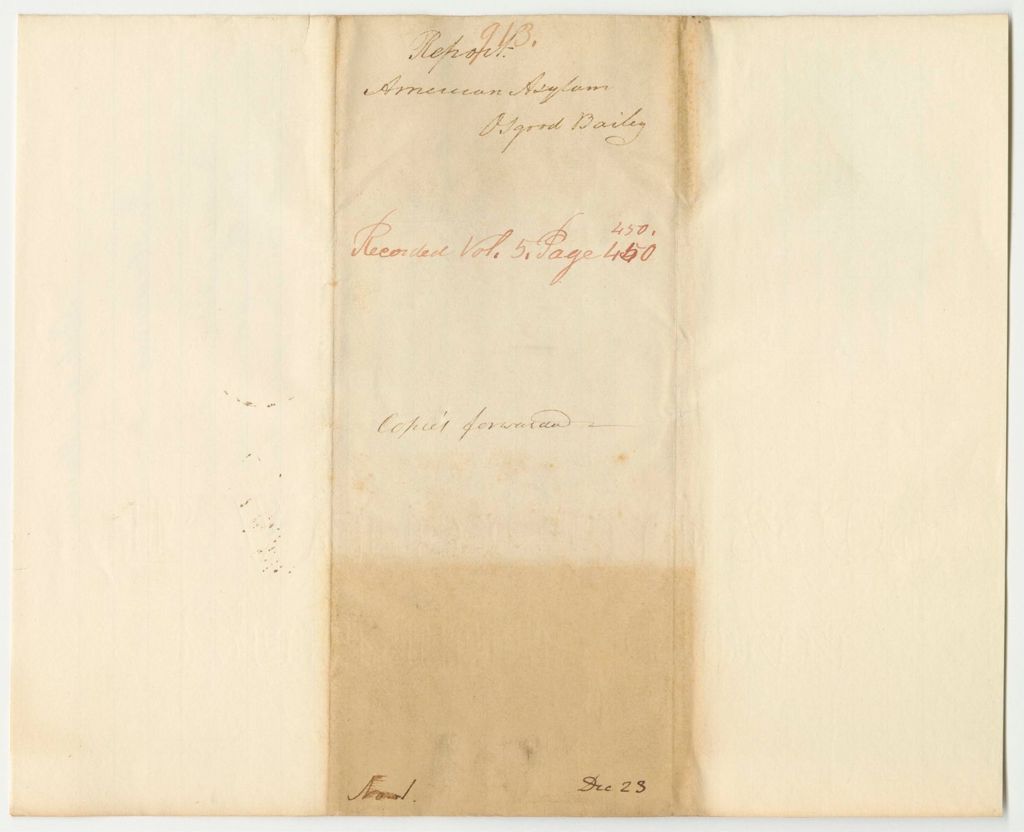 913.
Report.
American Asylum
Osgood Bailey
450.
Recorded Vol. 5. Page 450
Copies forwarded
Dec 23